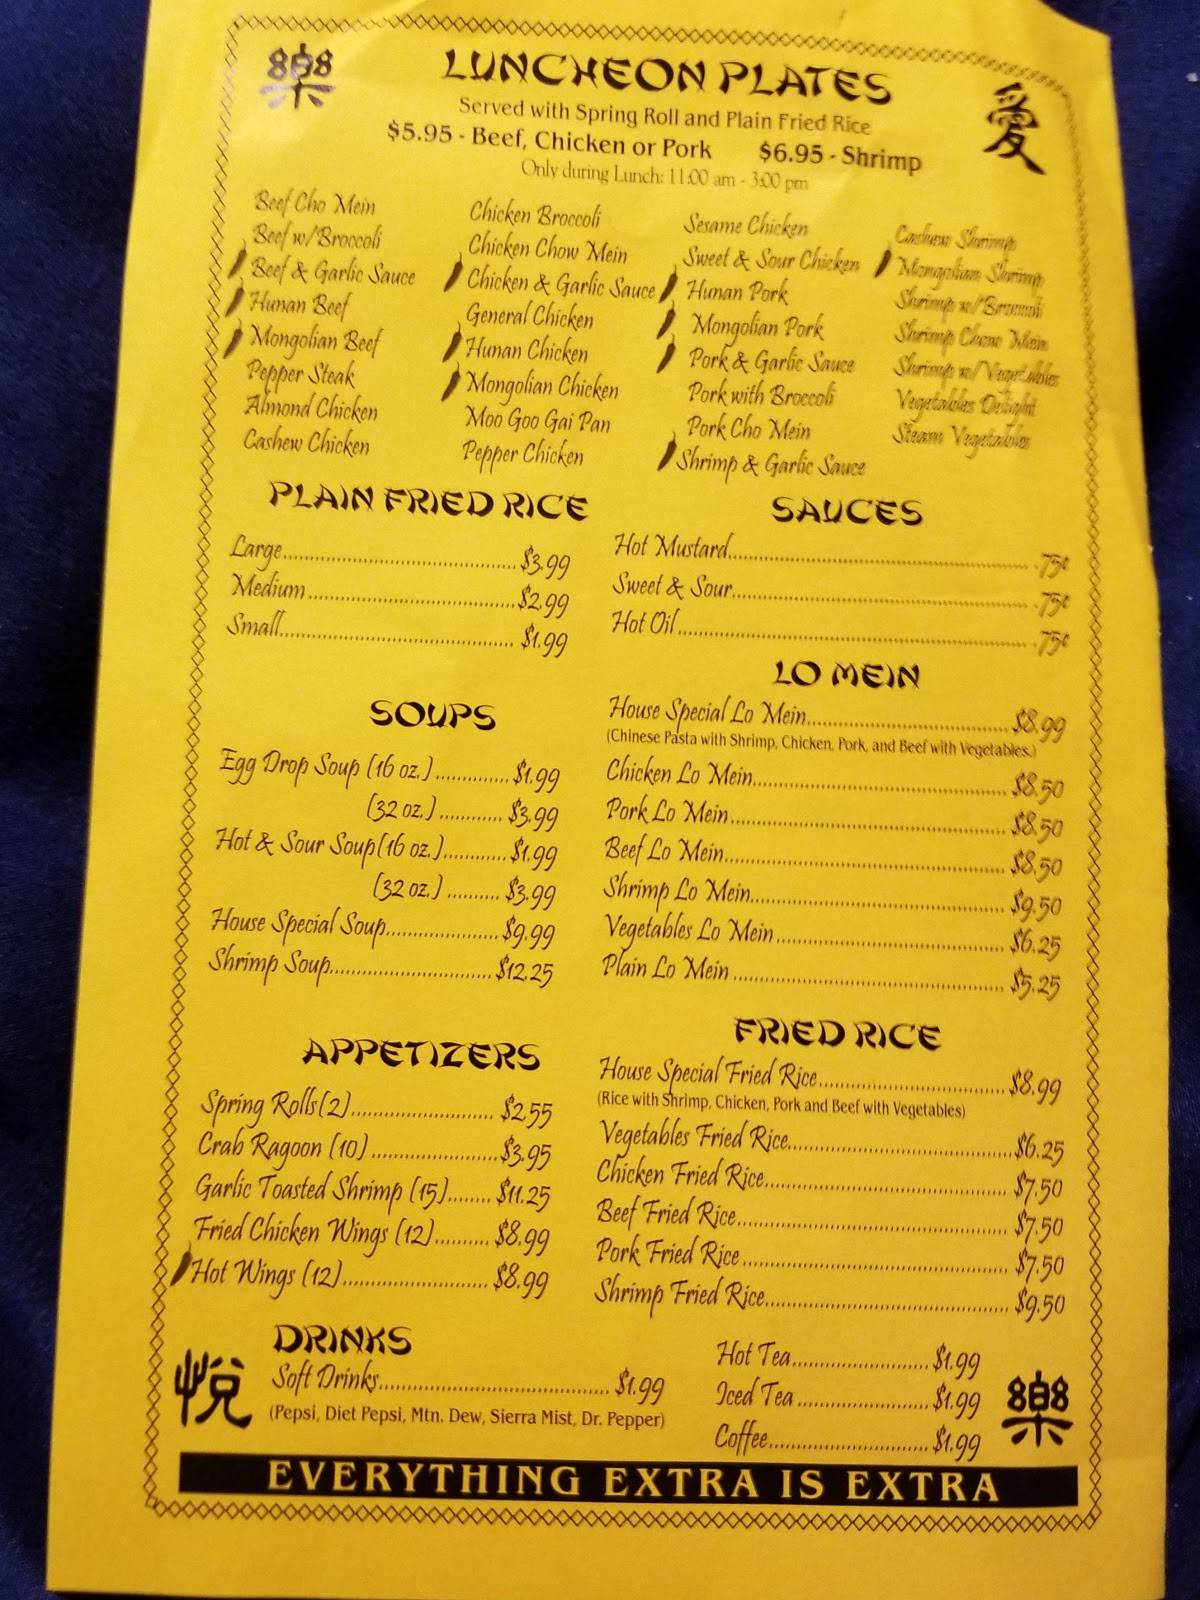 樂
LUNCHEON PLATES
愛
Served with Spring Roll and Plain Fried Rice
$5.95 - Beef, Chicken or Pork $6.95 - Shrimp
Only during Lunch: 11:00 am - 3:00 pm
Beef Cho Mein
Beef w/Broccoli
Beef & Garlic Sauce
Hunan Beef
Mongolian Beef
Pepper Steak
Almond Chicken
Cashew Chicken
Chicken Broccoli
Chicken Chow Mein
Chicken & Garlic Sauce
General Chicken
Hunan Chicken
Mongolian Chicken
Moo Goo Gai Pan
Pepper Chicken
Sesame Chicken
Sweet & Sour Chicken
Hunan Pork
Mongolian Pork
Pork & Garlic Sauce
Pork with Broccoli
Pork Cho Mein
Shrimp & Garlic Sauce
Cashew Shrimp
Mongolian Shrimp
Shrimp w/Broccoli
Shrimp Chow Mein
Shrimp w/Vegetables
Vegetables Delight
Steam Vegetables
PLAIN FRIED RICE
Large $3.99
Medium $2.99
Small $1.99
SOUPS
Egg Drop Soup (16 oz.) $1.99
(32 oz.) $3.99
Hot & Sour Soup (16 oz.) $1.99
(32 oz.) $3.99
House Special Soup $9.99
Shrimp Soup $12.25
APPETIZERS
Spring Rolls (2) $2.55
Crab Ragoon (10) $3.95
Garlic Toasted Shrimp (15) $11.25
Fried Chicken Wings (12) $8.99
Hot Wings (12) $8.99
SAUCES
Hot Mustard .75¢
Sweet & Sour .75¢
Hot Oil .75¢
LO MEIN
House Special Lo Mein $8.99
(Chinese Pasta with Shrimp, Chicken, Pork, and Beef with Vegetables.)
Chicken Lo Mein $8.50
Pork Lo Mein $8.50
Beef Lo Mein $8.50
Shrimp Lo Mein $9.50
Vegetables Lo Mein $6.25
Plain Lo Mein $5.25
FRIED RICE
House Special Fried Rice $8.99
(Rice with Shrimp, Chicken, Pork and Beef with Vegetables)
Vegetables Fried Rice $6.25
Chicken Fried Rice $7.50
Beef Fried Rice $7.50
Pork Fried Rice $7.50
Shrimp Fried Rice $9.50
悅
DRINKS
Soft Drinks $1.99
(Pepsi, Diet Pepsi, Mtn. Dew, Sierra Mist, Dr. Pepper)
Hot Tea $1.99
Iced Tea $1.99
Coffee $1.99
樂
EVERYTHING EXTRA IS EXTRA